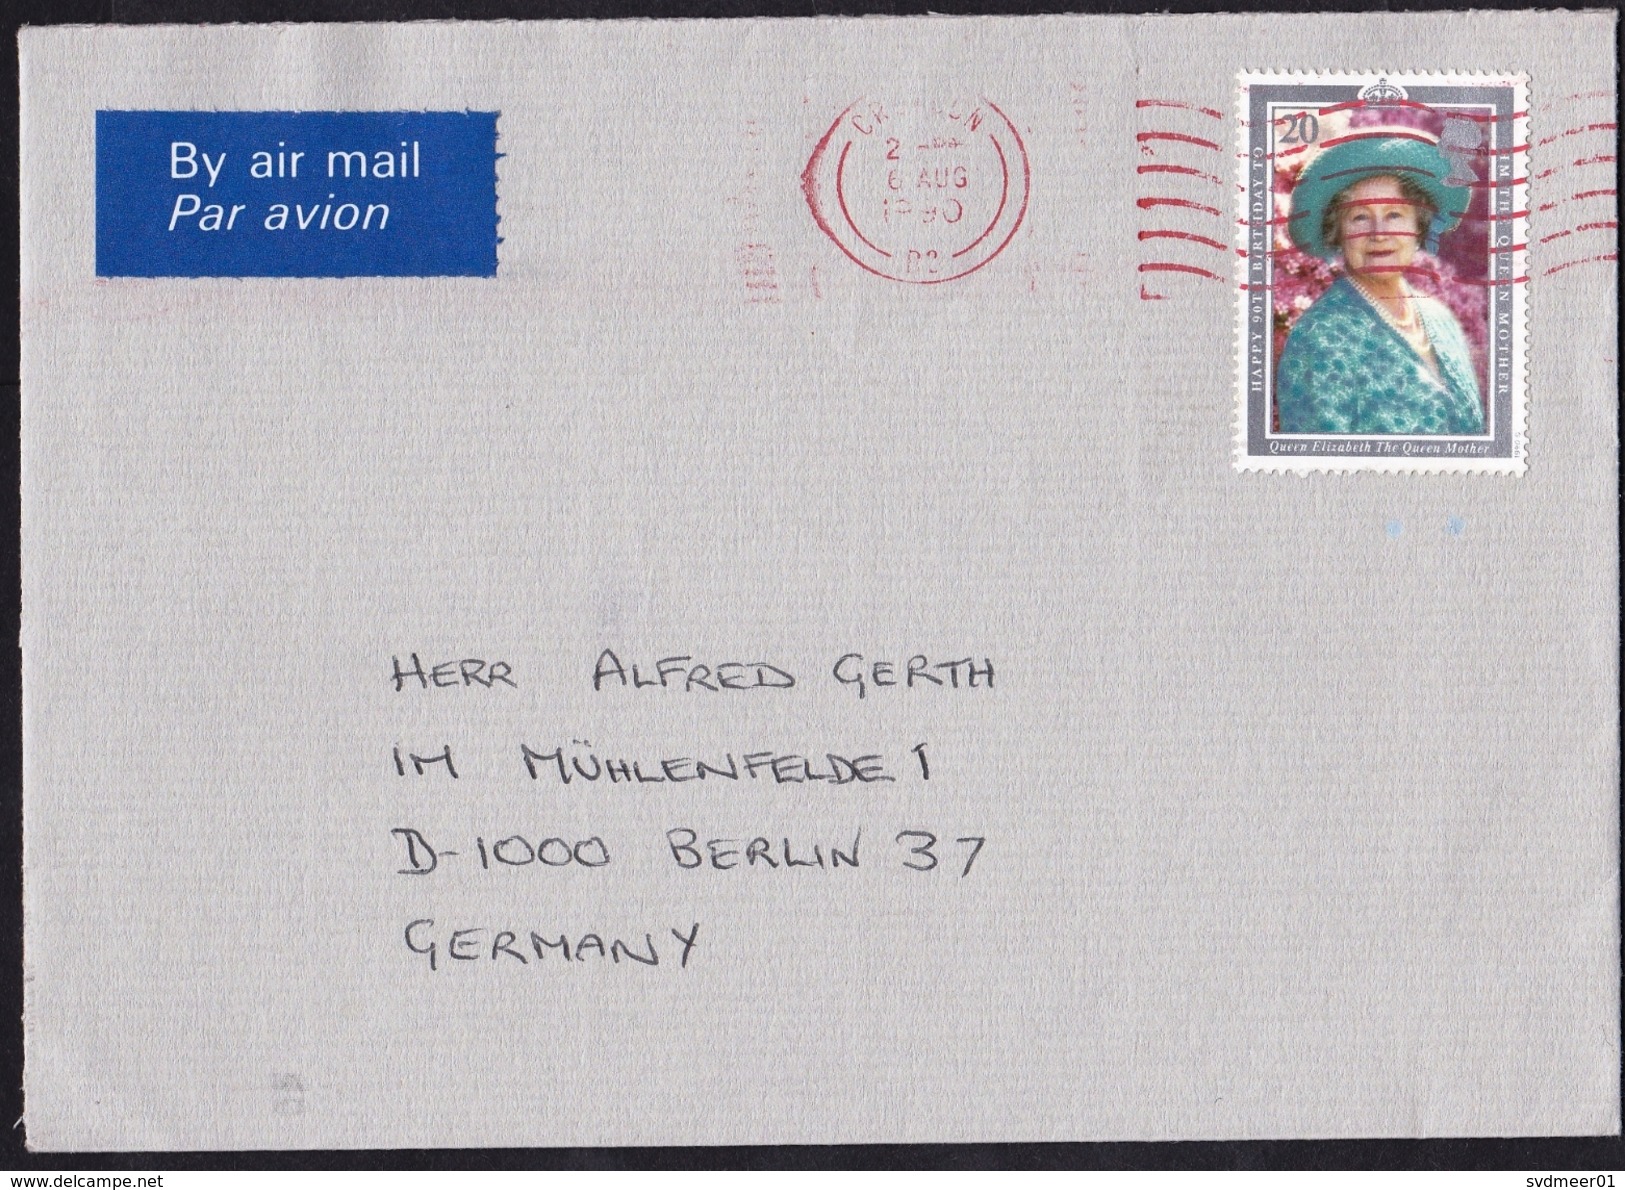 By air mail
Par avion
6 AUG
20
HAPPY 90TH BIRTHDAY TO
HM THE QUEEN MOTHER
Queen Elizabeth The Queen Mother
HERR ALFRED GERTH
IM MÜHLENFELDE 1
D-1000 BERLIN 37
GERMANY
delcampe.net
svdmeer01